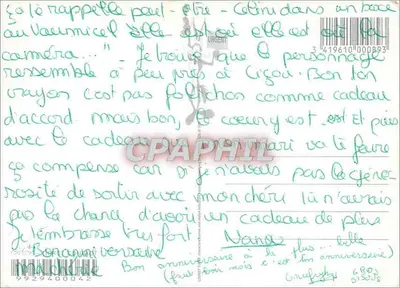 ça te rappelle peut-être - Céline dans un bocal
au Vaumicel Elle est où elle est où la
caméra..." Je trouve que le personnage
ressemble à peu près à Cizou. Bon ton
crayon c'est pas folichon comme cadeau
d'accord mais bon, le cœur y est. Et puis
avec le cadeau mon chéri va te faire
ça compense car si je n'avais pas la géné-
rosité de sortir avec mon chéri tu n'aurais
pas la chance d'avoir un cadeau de plus
Je t'embrasse très fort Nana
Bon anniversaire
ma chérie
Bon anniversaire à la plus belle
(trois mois c'est ton anniversaire)
3 419610 000893
9929400042
CPARHIL.COM